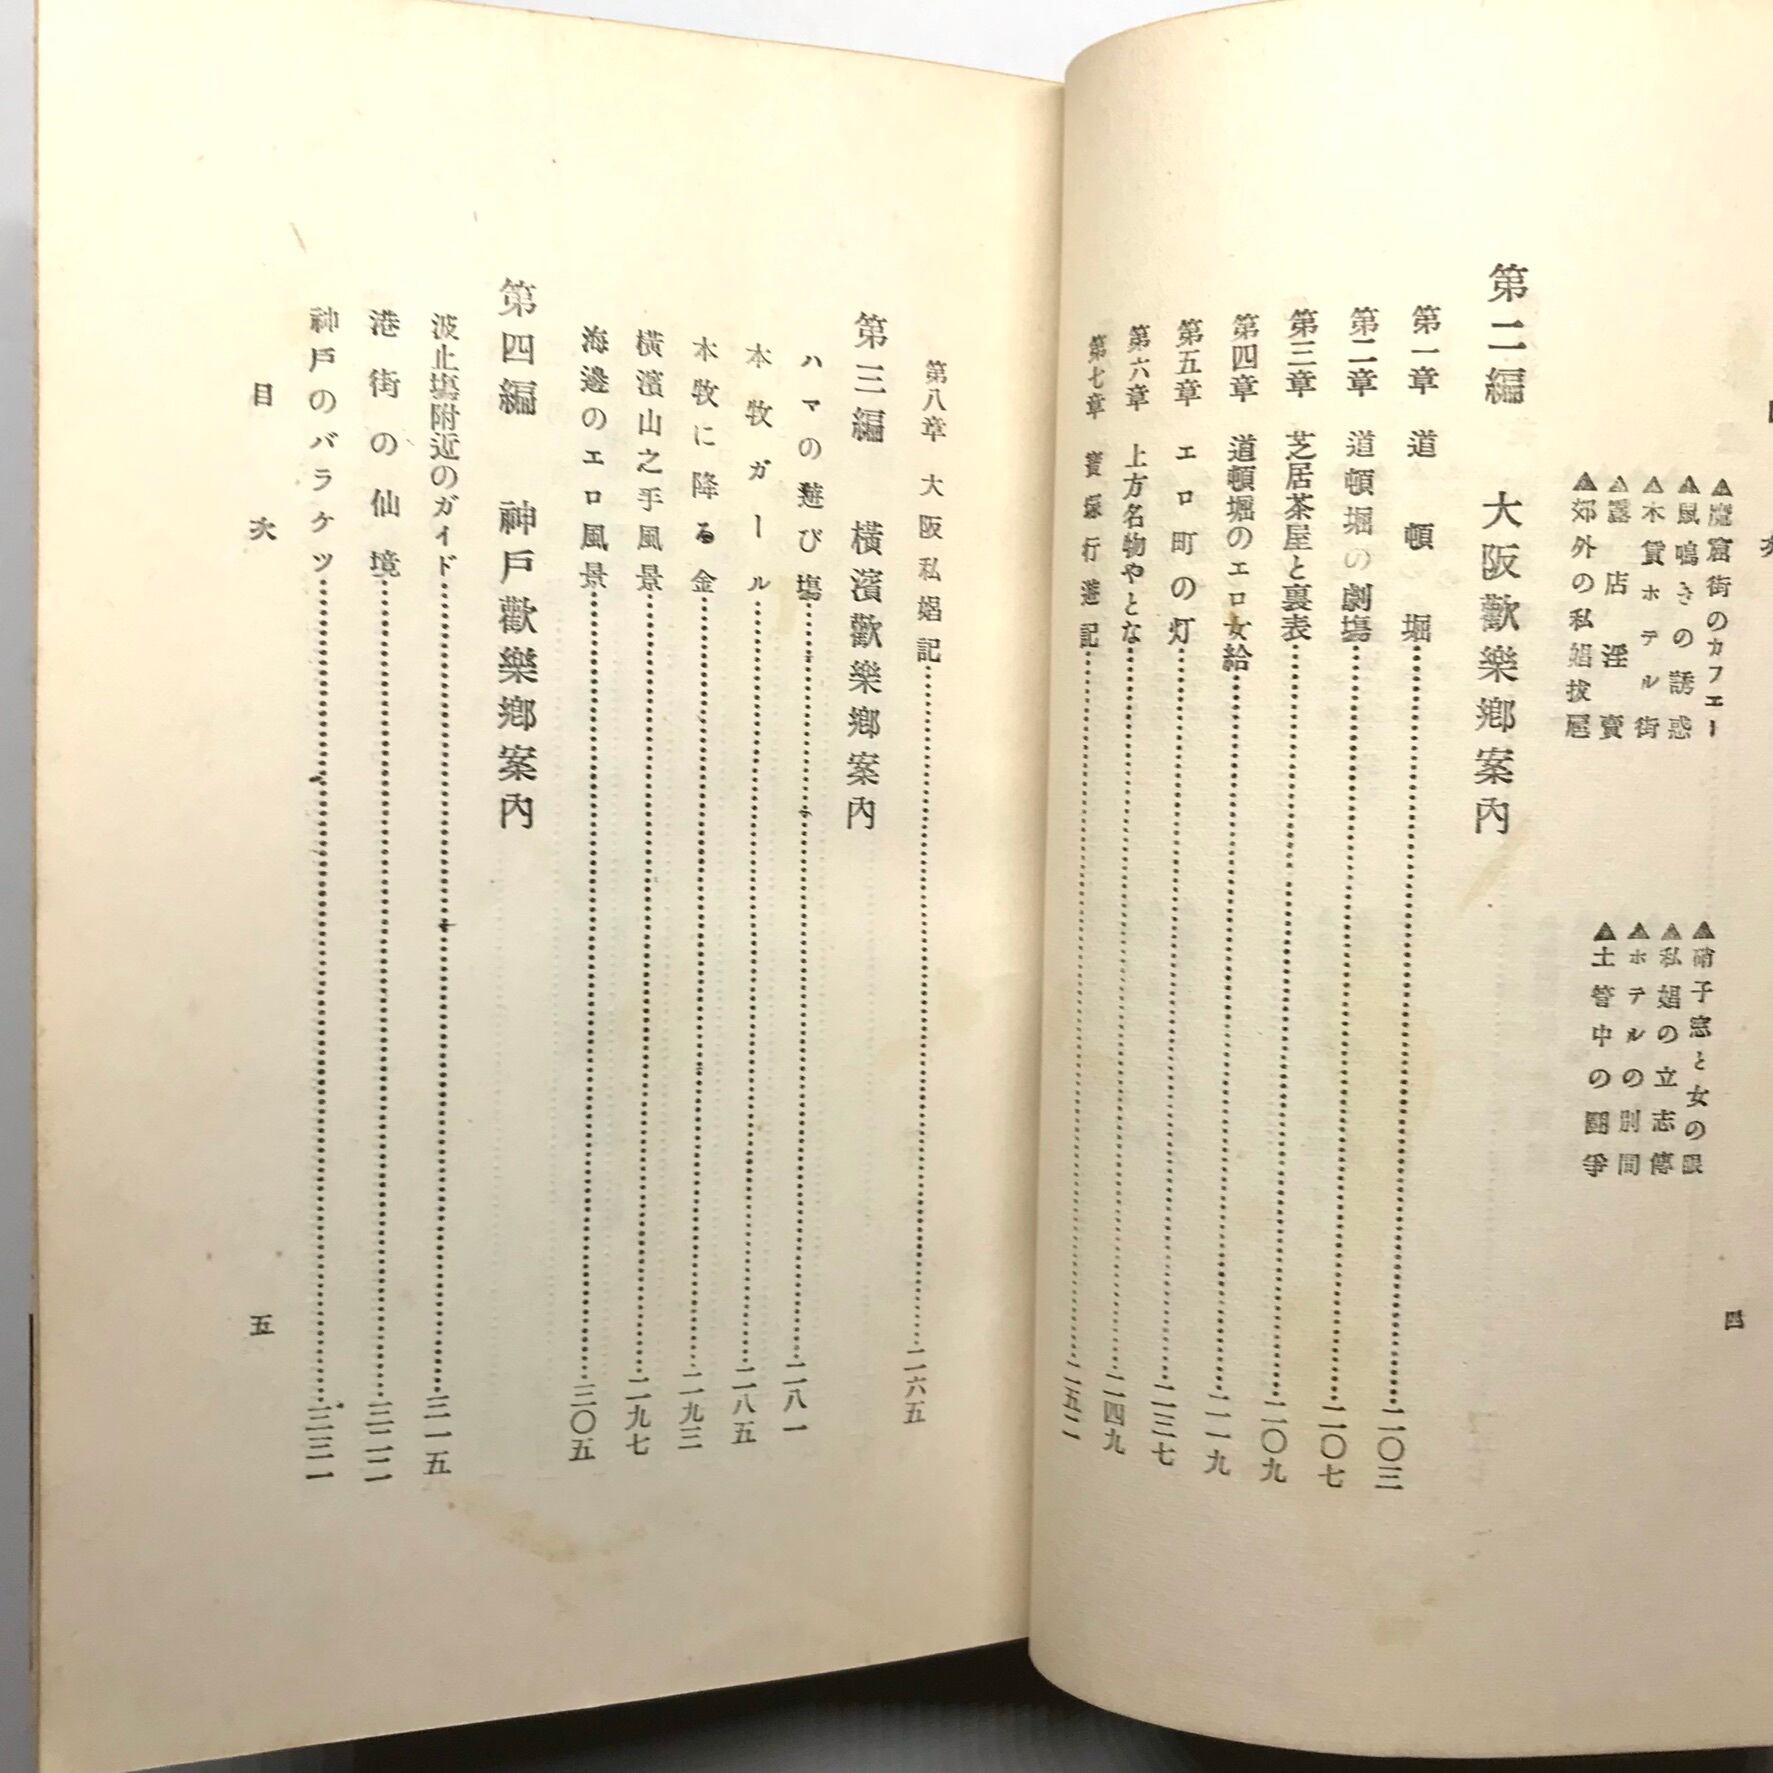 ▲魔窟街のカフエー
▲硝子窓と女の眼
▲鼠鳴きの誘惑
▲私娼の立志傳
▲木賃ホテル街
▲ホテルの別間
▲露店淫賣
▲土管中の鬪爭
▲郊外の私娼拔屋
第二編 大阪歡樂鄕案內
第一章 道頓堀……二〇三
第二章 道頓堀の劇場……二〇七
第三章 芝居茶屋と裏表……二〇九
第四章 道頓堀のエロ女給……二一九
第五章 エロ町の灯……二三七
第六章 上方名物やとな……二四九
第七章 寶塚行遊記……二五二
四
第八章 大阪私娼記……二六五
第三編 橫濱歡樂鄕案內
ハマの遊び場……二八一
本牧ガール……二八五
本牧に降る金……二九三
橫濱山之手風景……二九七
海邊のエロ風景……三〇五
第四編 神戶歡樂鄕案內
波止場附近のガイド……三一五
港街の仙境……三二二
神戶のバラケツ……三三一
目次
五